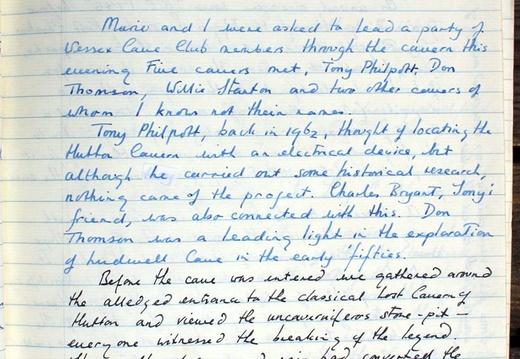 Marie and I were asked to lead a party of
Wessex Cave Club members through the cavern this
evening Five cavers met, Tony Philpott, Don
Thomson, Willie Stanton and two other cavers of
whom I know not their names.
Tony Philpott, back in 1962, thought of locating the
Hutton Cavern with an electrical device, but
although he carried out some historical research,
nothing came of the project. Charles Bryant, Tony's
friend, was also connected with this. Don
Thomson was a leading light in the exploration
of Ludwell Cave in the early 'fifties.
Before the cave was entered we gathered around
the alledged entrance to the classical Lost Cavern of
Hutton and viewed the uncaverniferous stone-pit —
everyone witnessed the breaking of the legend
had converted the